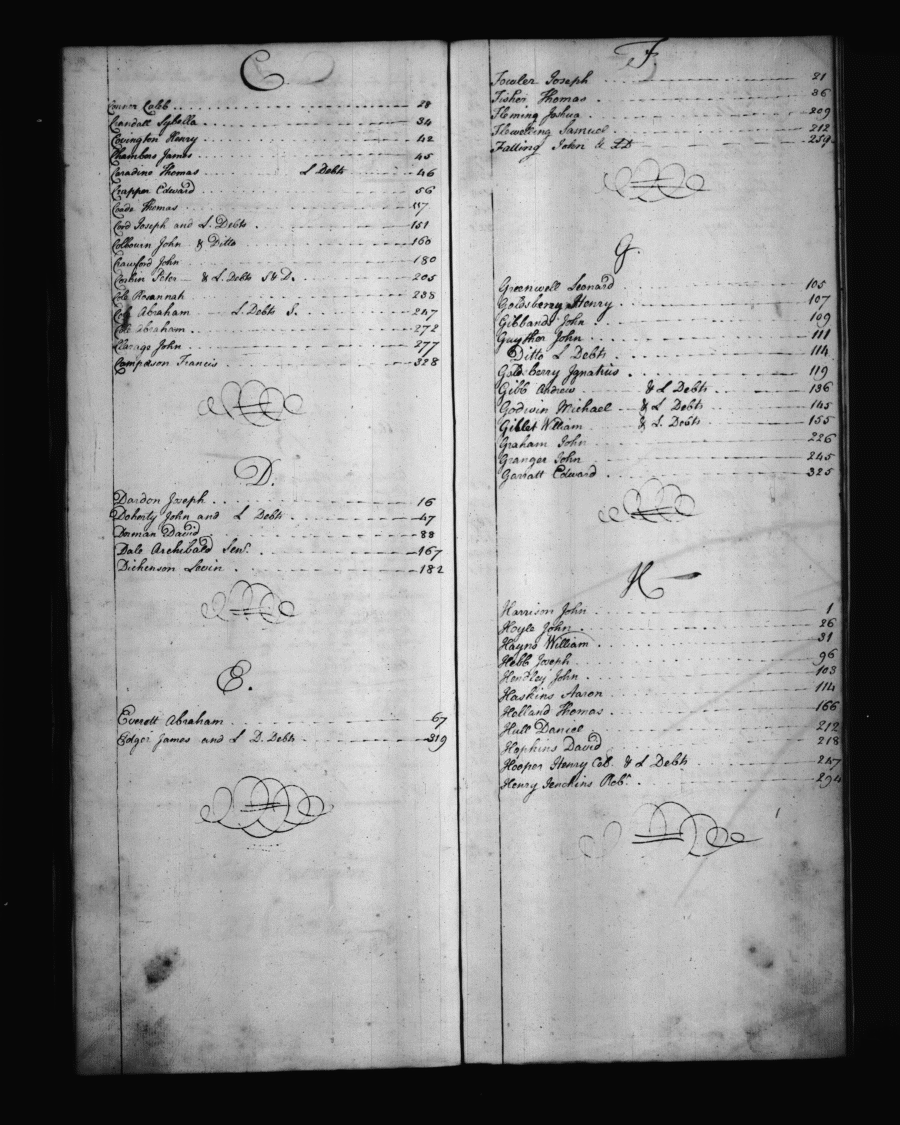 C
Conner Cabb 28
Crandall Sybella 34
Covington Henry 42
Chambers James 45
Caradine Thomas L Debts 46
Crapper Edward 56
Coade Thomas 117
Cord Joseph and L. Debts 151
Colbourn John & Ditto 160
Crawford John 180
Corkin Peter & L. Debts S & D. 205
Cole Rosannah 238
Cole Abraham L. Debts S. 247
Cole Abraham 272
Clarage John 277
Compason Francis 328
D.
Dardon Joseph 16
Doherty John and L Debts 47
Dorman David 88
Dale Archibald Senr. 167
Dickenson Levin 182
E.
Everett Abraham 67
Edger James and L D. Debts 319
F.
Fowler Joseph 21
Fisher Thomas 36
Fleming Joshua 209
Flewelling Samuel 212
Falling John & LD 259
G.
Greenwell Leonard 105
Goldsberry Henry 107
Gibbands John 109
Guyther John 111
Ditto L Debts 114
Goldsberry Ignatius 119
Gibb Andrew & L Debts 136
Godwin Michael & L Debts 145
Giblet William & L. Debts 155
Graham John 226
Granger John 245
Garratt Edward 325
H
Harrison John 1
Hoyle John 26
Hayns William 31
Hebb Joseph 96
Hendley John 103
Haskins Aaron 114
Holland Thomas 166
Hull Daniel 212
Hopkins David 218
Hooper Henry Col. & L Debts 247
Henry Jenckins Robt. 294